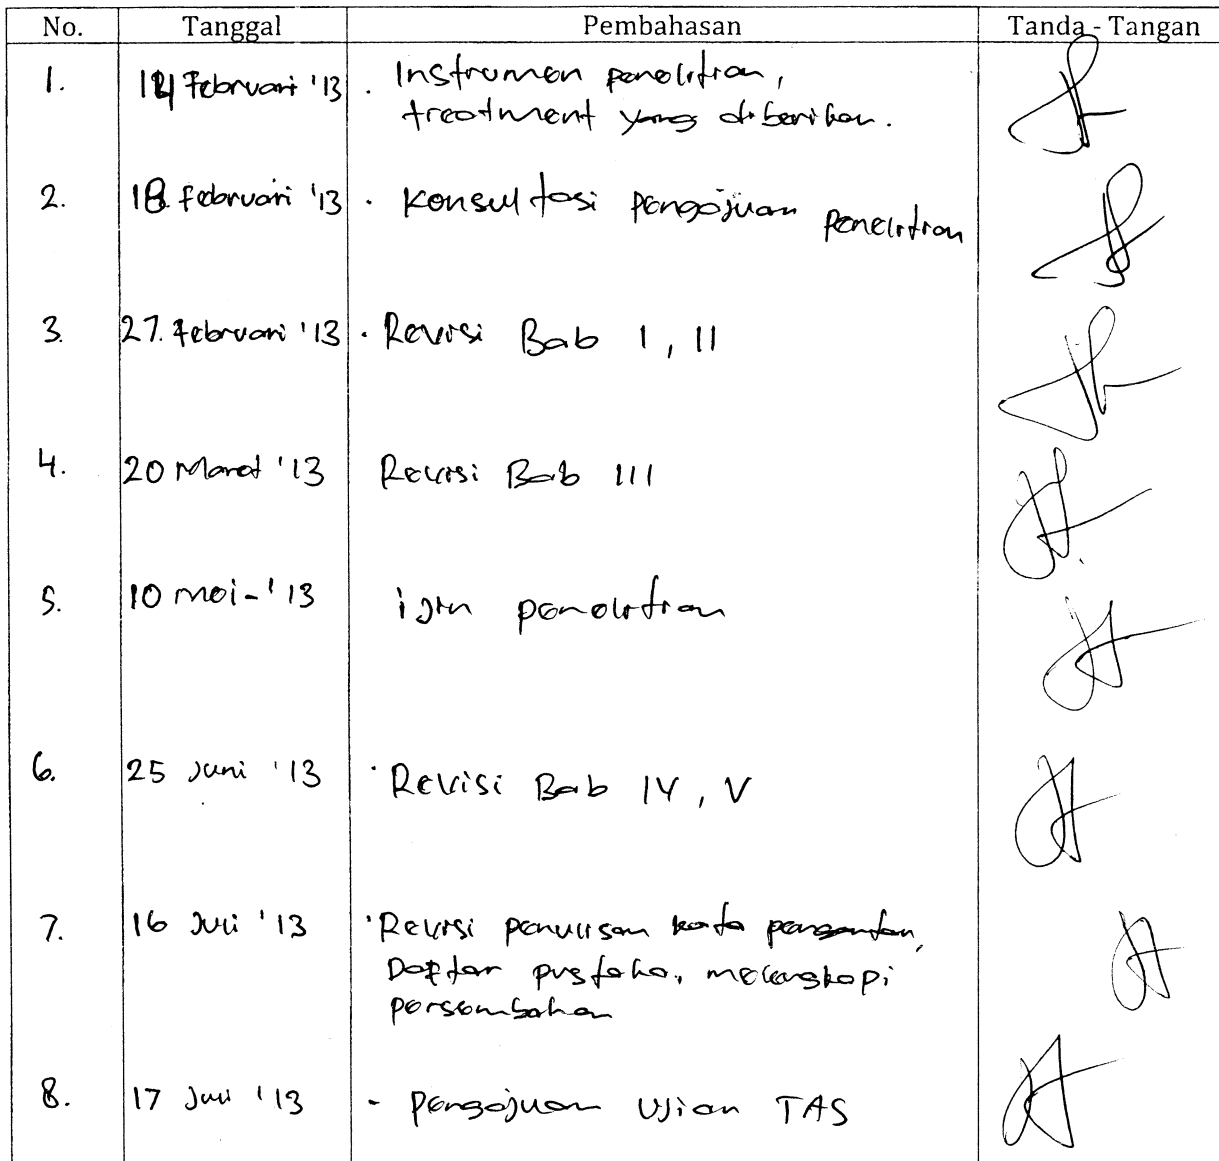 No. Tanggal Pembahasan Tanda - Tangan
1. 14 Februari '13 . Instrumen penelitian,
treatment yang diberikan.
2. 18 februari '13 . Konsultasi pengajuan penelitian
3. 27. februari '13 . Revisi Bab I, II
4. 20 Maret '13 Revisi Bab III
5. 10 mei - '13 ijin penelitian
6. 25 Juni '13 . Revisi Bab IV, V
7. 16 Juli '13 . Revisi penulisan kata pengantar,
Daftar pustaka, melengkapi
persembahan
8. 17 Juli '13 - pengajuan Ujian TAS